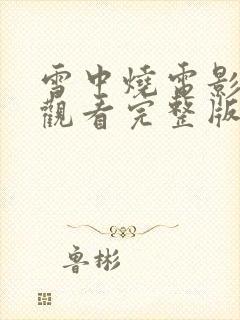 雪中燒電影
觀看完整版
魯彬